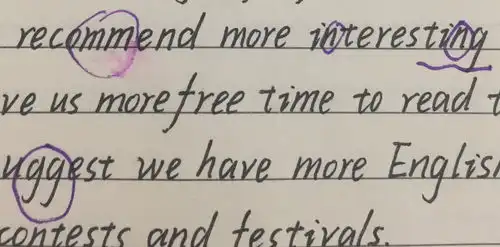 recommend more interesting
ve us more free time to read t
uggest we have more Englis
contests and festivals.